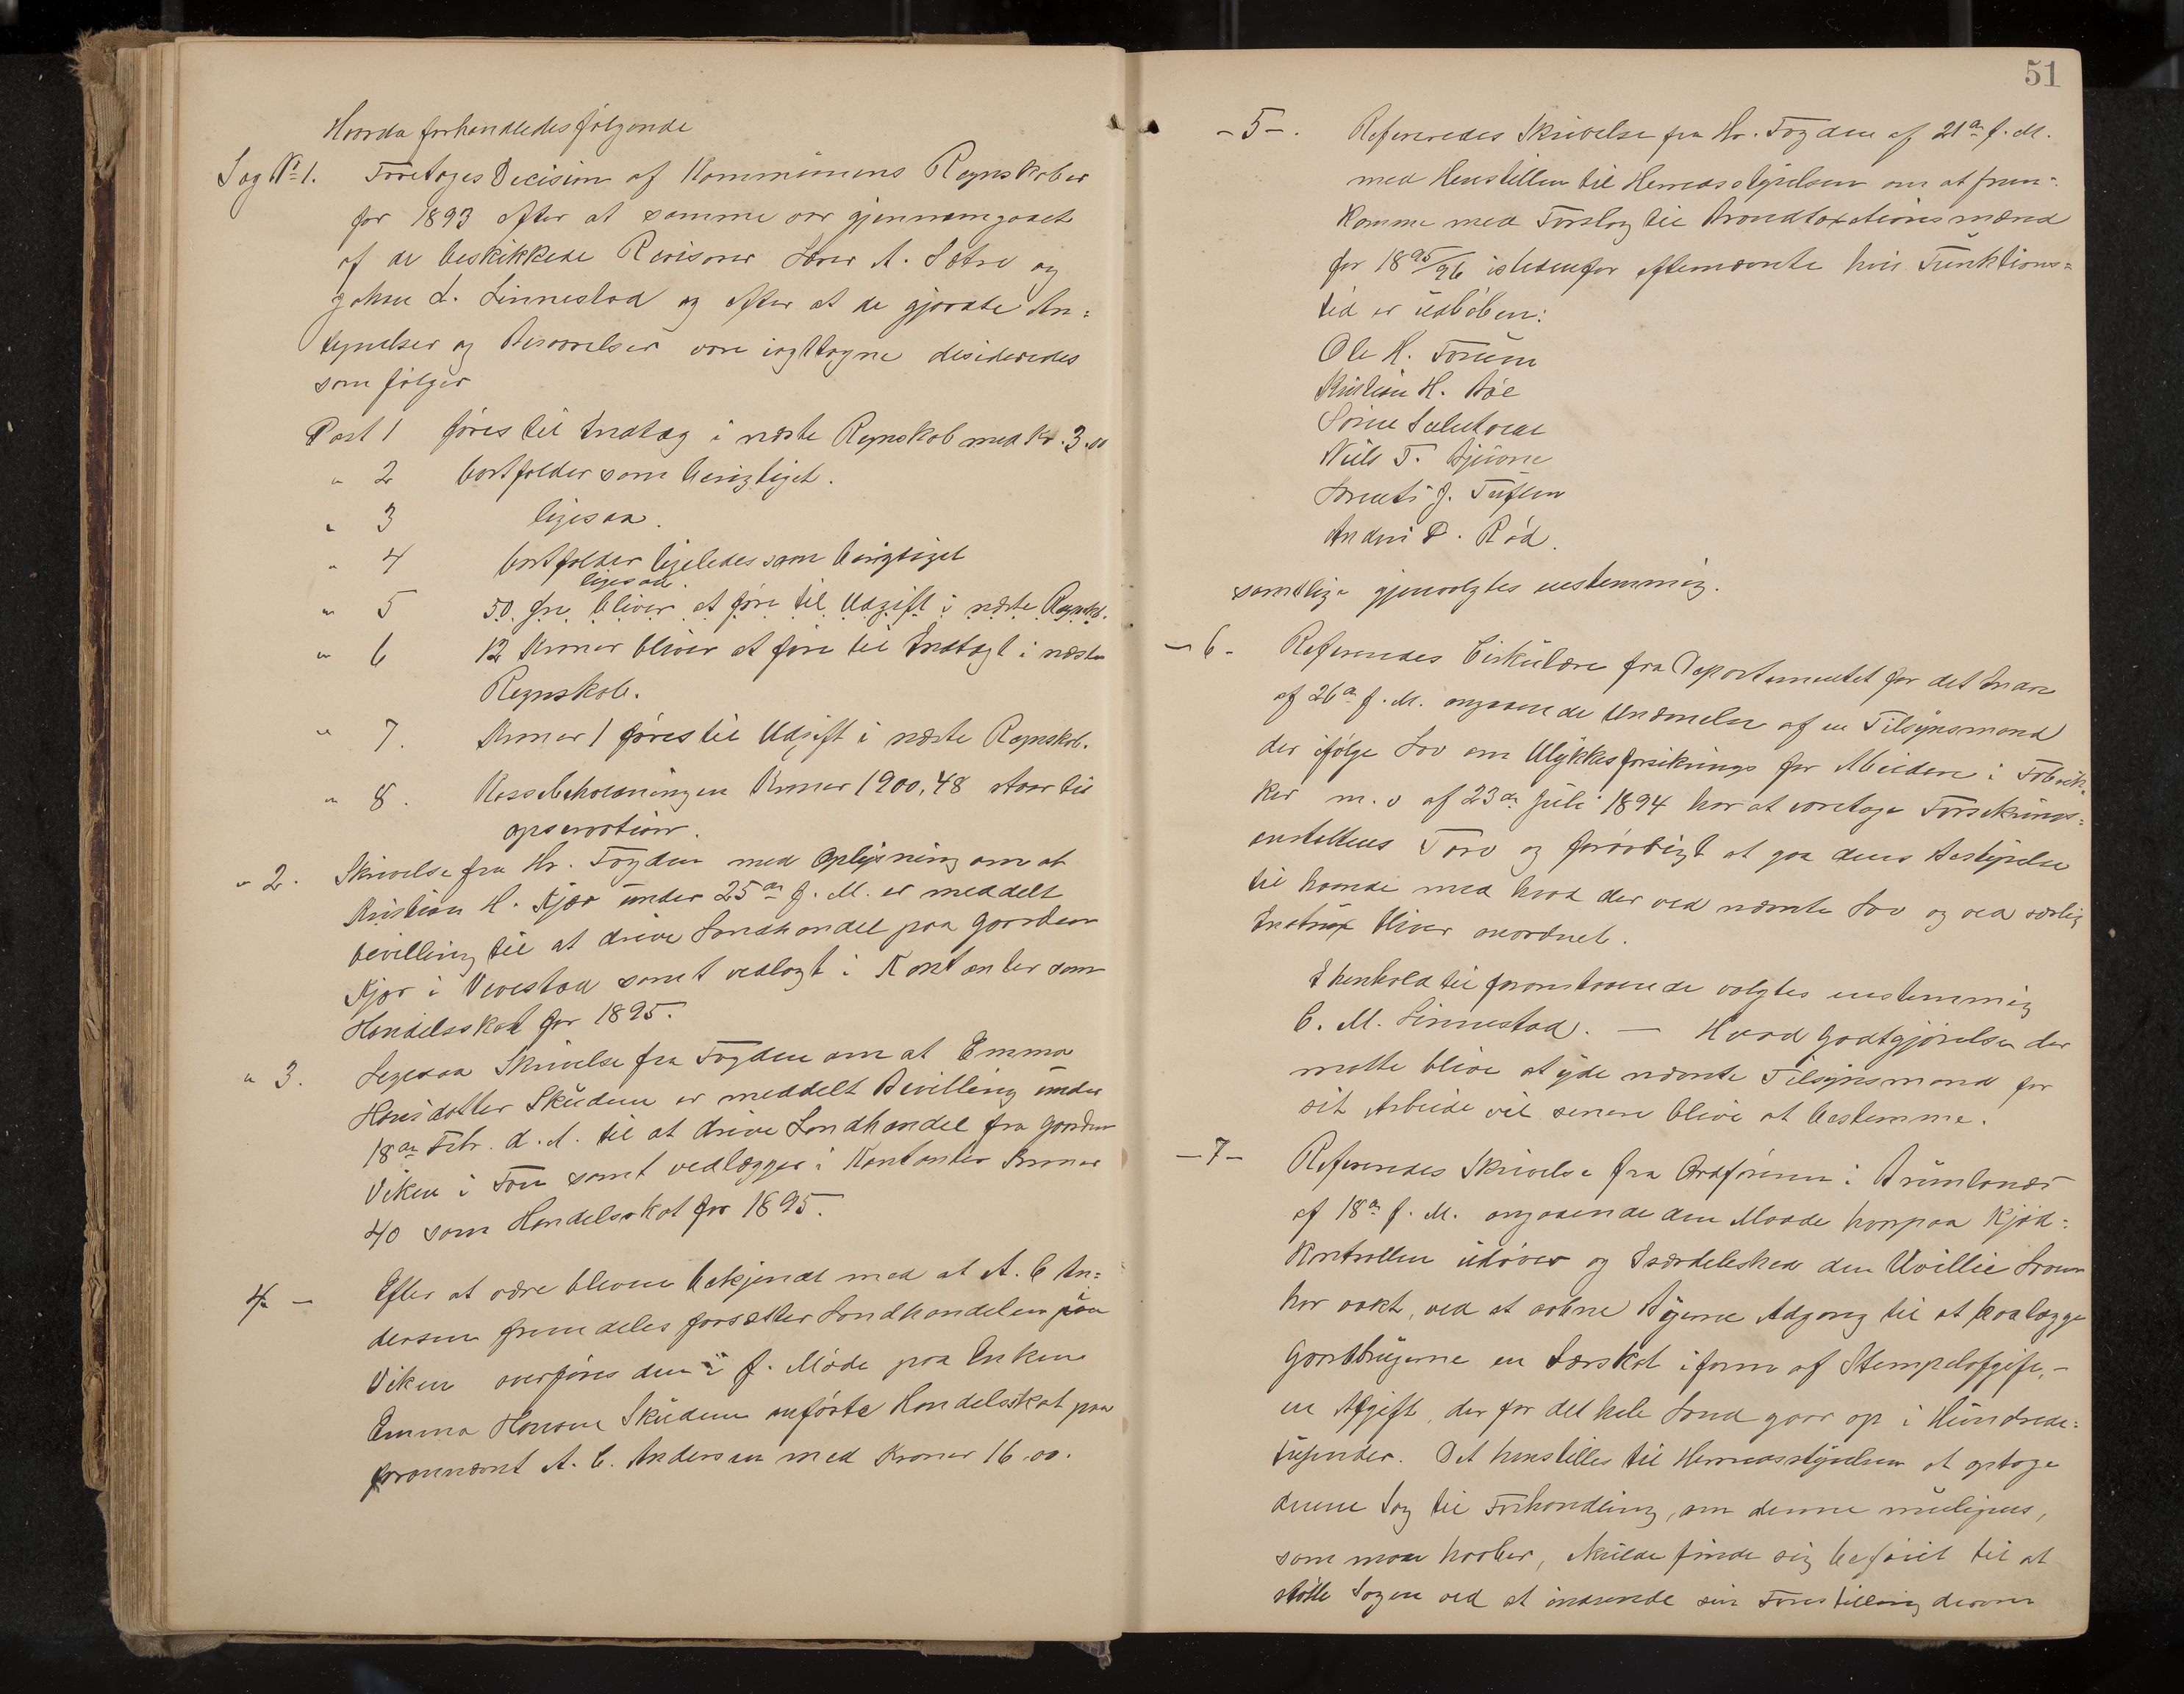 Hvorda forhandledes følgende
Sag No 1. Foretages Decision af Kommunens Regnskaber
for 1893 efter at samme var gjennemgaaet
af de beskikkede Revisorer Lærer A. Sætre og
Johan L. Linnestad og efter at de gjordte An=
tegnelser og Besvarelser vare iagttagne desideredes
som følger
Post 1 føres til Indtæg i næste Regnskab med Kr. 3.00
" 2 bortfalder som berigtiget.
" 3 ligesaa.
" 4 bortfalder ligeledes som berigtiget
ligesaa.
" 5 50 Øre bliver at føre til Udgift i næste Regnskb.
" 6 12 Kroner bliver at føre til Indtægt i næste
Regnskab.
" 7. Kroner 1 føres til Udgift i næste Regnskab.
" 8. Kassebeholdningen Kroner 1900,48 staar til
observation.
" 2. Skrivelse fra Hr. Fogden med Oplysning om at
Kristian H. Kjær under 25de f. M. er meddelt
bevilling til at drive Landhandel paa Gaarden
Kjær i samt vedlagt i Kontanter som
Handelsskat for 1895.
" 3. Ligesaa Skrivelse fra Fogden om at Emma
Hansdatter Skuden er meddelt Bevilling under
18de Febr. d. A. til at drive Landhandel fra Gaarden
Viken i Fon samt vedlægger i Kontanter Kroner
40 som Handelsskat for 1895.
4 - Efter at være bleven bekjendt med at A. C An=
dersen fremdeles forsætter Landhandelen paa
Viken overføres den i f. Møde paa Enken
Emma Hansen Skuden anførte Handelsskat paa
forannævnt A. C. Andersen med Kroner 16.00.
51
- 5 -. Refereredes Skrivelse fra Hr. Fogden af 21de f. M.
med Henstillen til Herredsstyrelsen om at frem=
komme med Forslag til Brandtaxtionsmænd
for 1895/96 istedenfor efternævnte hvis Funktions=
tid er udløben:
Ole H. Forum
Kristian H. Bøe
Søren
Niels T. Bjune
Lorents J. Tuften
Andreas D. Rød.
samtlige gjenvalgtes enstemmig.
- 6 - Refereredes Cirkulære fra Departementet for det Indre
af 26de f. M. angaaende Udnævnelse af en Tilsynsmand
der ifølge Lov om Ulykkesforsikrings for Arbeidere i Fabrik=
ker m. v af 23de Juli 1894 har at varetage Forsikrings=
anstaltens Tarv og forøvrigt at gaa dens Bestyrelse
til haande med hvad der ved nævnte Lov og ved særlig
Instrux bliver anordnet.
I henhold til foranstaaende valgtes enstemmig
C. M. Linnestad. — Hvad Godtgjørelse der
maatte blive at yde nævnte Tilsynsmand for
sit Arbeide vil senere blive at bestemme.
- 7 - Refereredes Skrivelse fra Ordføreren i Brunlanæs
af 18de f. M. angaaende den Maade hvorpaa Kjød=
kontrollen udøves og Isærdeleshed den Uvillie Loven
har vakt, ved at aabne Byerne Adgang til at paalægge
Gaardbrugerne en Særskat i form af Stempelafgift,-
en Afgift, der for det hele Land gaar op i Hundrede=
tusender. Det henstilles til Herredsstyrelsen at optage
denne Sag til Forhandling, om denne muligens,
som man haaber, skulde finde sig beføiet til at
støtte Sagen ved at indsende sin Forestilling derom